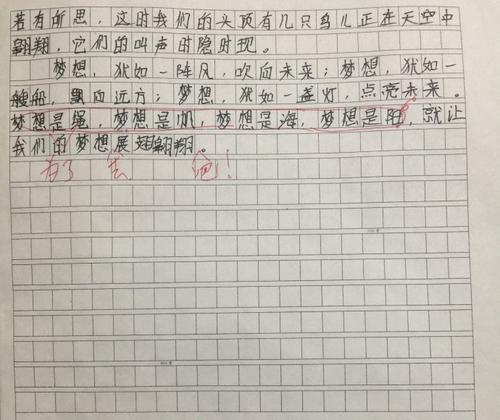 若有所思，这时我们的头顶有几只鸟儿正在天空中
翱翔，它们的叫声时隐时现。
梦想，犹如一阵风，吹向未来；梦想，犹如一
艘船，飘向远方；梦想，犹如一盏灯，点亮未来。
梦想是绳，梦想是帆，梦想是海，梦想是阳，就让
我们的梦想展翅翱翔。
为了 去 吧！